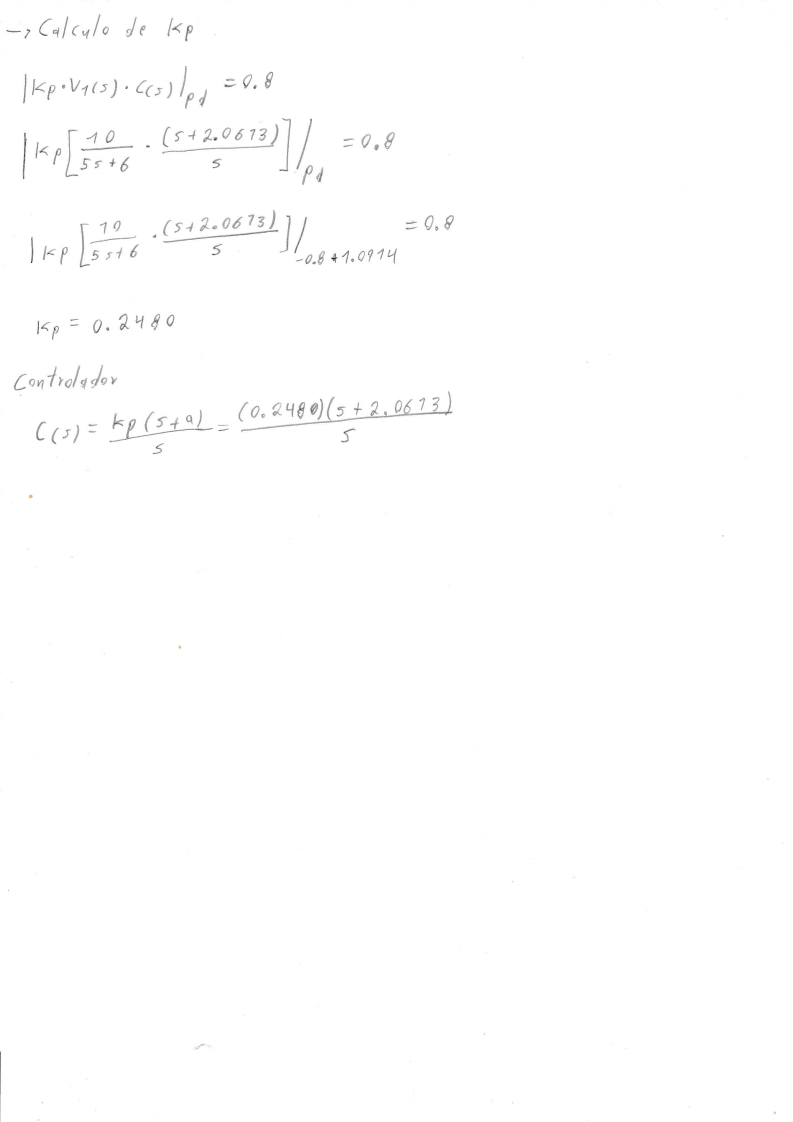 → Calculo de Kp
|Kp·V1(s)·C(s)|pd = 0.8
|Kp[10/(5s+6) · (s+2.0673)/s]|pd = 0.8
|Kp[10/(5s+6) · (s+2.0673)/s]|-0.8+1.0914 = 0.8
Kp = 0.2480
Controlador
C(s) = Kp(s+a)/s = (0.2480)(s+2.0673)/s